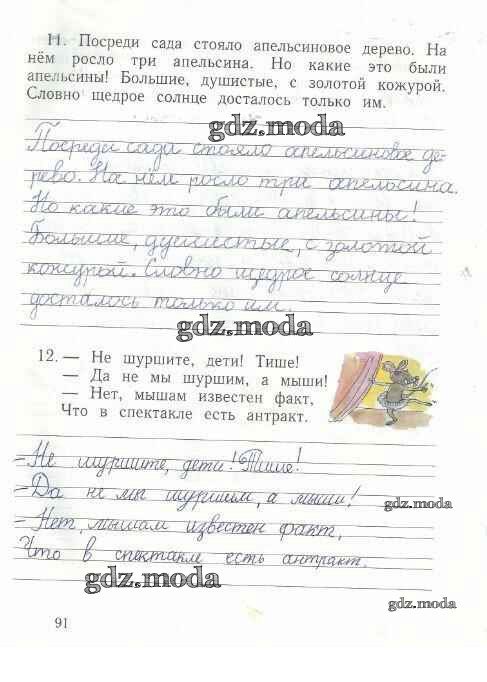 11. Посреди сада стояло апельсиновое дерево. На
нём росло три апельсина. Но какие это были
апельсины! Большие, душистые, с золотой кожурой.
Словно щедрое солнце досталось только им.
gdz.moda
Посреди сада стояло апельсиновое де-
рево. На нём росло три апельсина.
Но какие это были апельсины!
Большие, душистые, с золотой
кожурой. Словно щедрое солнце
досталось только им.
gdz.moda
12. — Не шуршите, дети! Тише!
— Да не мы шуршим, а мыши!
— Нет, мышам известен факт,
Что в спектакле есть антракт.
-Не шуршите, дети! Тише!
-Да не мы шуршим, а мыши!
gdz.moda
-Нет, мышам известен факт,
Что в спектакле есть антракт.
gdz.moda
gdz.moda
91